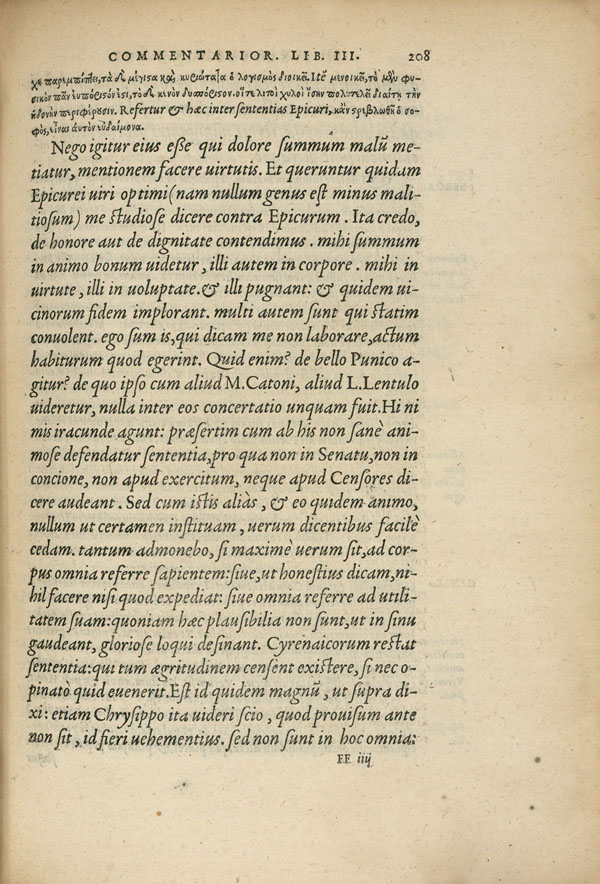 COMMENTARIOR. LIB. III. 208
χη παρεμπίπτει, τὰ δὲ μέγιστα καὶ κυριώτατα ὁ λογισμὸς διοικεῖ. Itē
σικὸν πᾶν εὐπόριστόν ἐστι, τὸ δὲ κενὸν δυσπόριστον. οἵτε λιτοὶ χυλοὶ ἴσην πολυτελεῖ διαίτῃ τὴν
ἡδονὴν Refertur & hæc inter sententias Epicuri, κἂν στρεβλωθῇ ὁ σο-
φὸς, εἶναι αὐτὸν εὐδαίμονα.
Nego igitur eius eße qui dolore summum malū me-
tiatur, mentionem facere uirtutis. Et queruntur quidam
Epicurei uiri optimi (nam nullum genus est minus mali-
tiosum) me studiose dicere contra Epicurum. Ita credo,
de honore aut de dignitate contendimus. mihi summum
in animo bonum uidetur, illi autem in corpore. mihi in
uirtute, illi in uoluptate. & illi pugnant: & quidem ui-
cinorum fidem implorant. multi autem sunt qui statim
conuolent. ego sum is, qui dicam me non laborare, actum
habiturum quod egerint. Quid enim? de bello Punico a-
gitur? de quo ipso cum aliud M. Catoni, aliud L. Lentulo
uideretur, nulla inter eos concertatio unquam fuit. Hi ni
mis iracunde agunt: præsertim cum ab his non sanè ani-
mose defendatur sententia, pro qua non in Senatu, non in
concione, non apud exercitum, neque apud Censores di-
cere audeant. Sed cum istis aliàs, & eo quidem animo,
nullum ut certamen instituam, uerum dicentibus facilè
cedam. tantum admonebo, si maximè uerum sit, ad cor-
pus omnia referre sapientem: siue, ut honestius dicam, ni-
hil facere nisi quod expediat: siue omnia referre ad utili-
tatem suam: quoniam hæc plausibilia non sunt, ut in sinu
gaudeant, gloriose loqui desinant. Cyrenaicorum restat
sententia: qui tum ægritudinem censent existere, si nec o-
pinatò quid euenerit. Est id quidem magnū, ut supra di-
xi: etiam Chrysippo ita uideri scio, quod prouisum ante
non sit, id fieri uehementius. sed non sunt in hoc omnia:
FF iiij